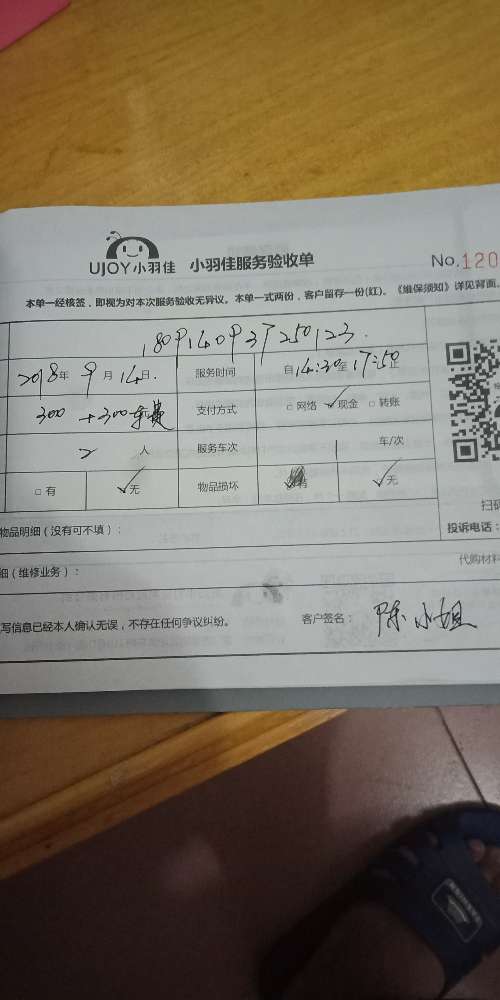 UJOY小羽佳 小羽佳服务验收单 No.120
本单一经核签，即视为对本次服务验收无异议。本单一式两份，客户留存一份(红)。《维保须知》详见背面。
1809140937250123
2018年 9月 14日 服务时间 自14:30至17:50止
300 +300车费 支付方式 □网络 ✓现金 □转账
2 人 服务车次 1 车/次
□有 ✓无 物品损坏 有 ✓无
扫码
物品明细（没有可不填）： 投诉电话：
细（维修业务）： 代购材料
写信息已经本人确认无误，不存在任何争议纠纷。 客户签名： 陈小姐